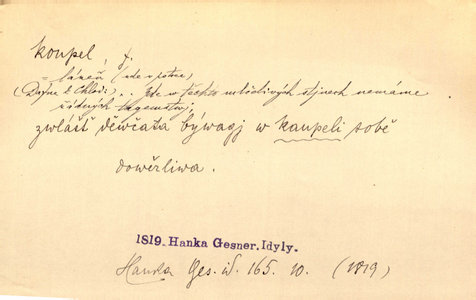 koupel, f.
= lázeň (zde v potoce)
(Dafne k Chloi: .. Zde w těchto mlčeliwých stjnech nemáme
žádných tagemstwj;
zwlášť děwčata býwagj w kaupeli sobě
dowěrliwa.
1819. Hanka Gesner. Idyly.
Hanka Ges. id. 165. 10. (1819)